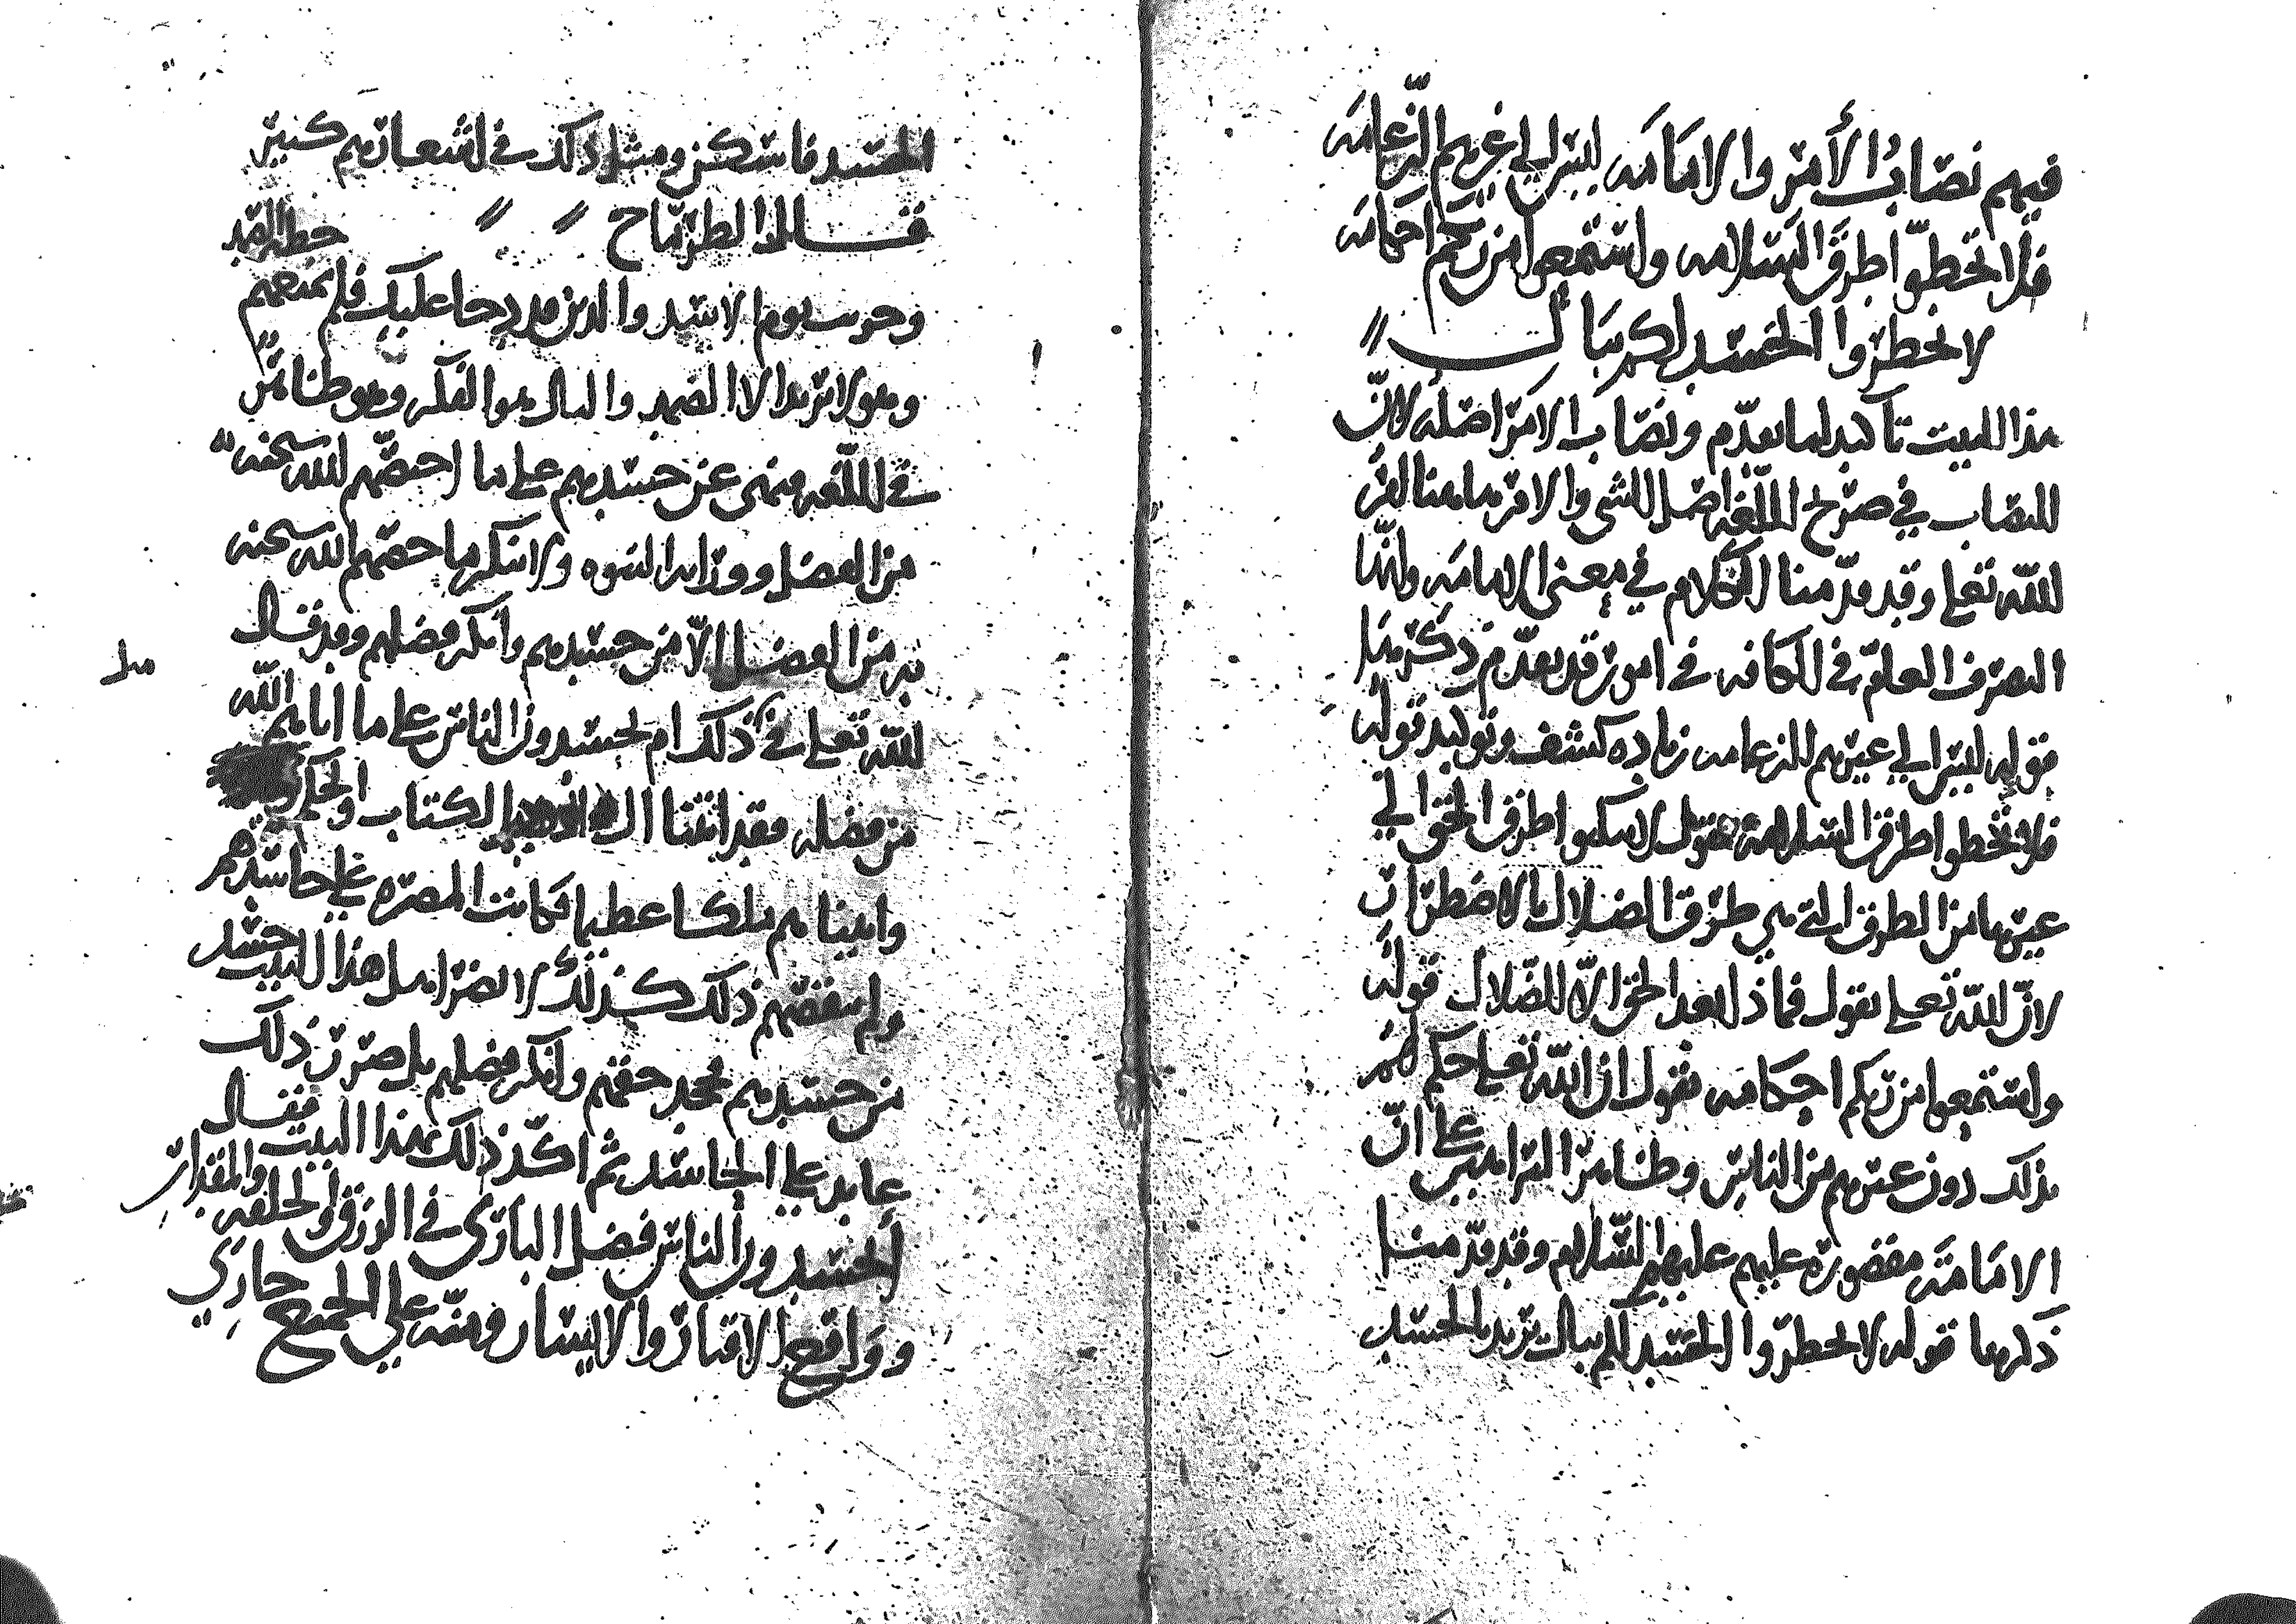 فيهم نصاب الأمر والامامه ليس الى غيرهم الزعامه
فلا تخطوا طرق السلامه واستمعوا من ربكم احكامه
لا تخطروا الحسد لكم ببال
هذا البيت تاكيد لما تقدم ونصاب الامر اصله لان
النصاب في صريح اللغه اصل الشي والامر هاهنا امر
الله تعلى وقد قدمنا الكلام في معنى الامامه وانها
التصرف العام في الكافه في امور قد تقدم ذكرها
قوله ليس الى غيرهم الزعامه زياده كشف وتوكيد قوله
فلا تخطوا طرق السلامه يقول لا تسلكوا طرق الحق الى
غيرها من الطرق التي هي طرق الضلال بالاضطرار
لان الله تعلى يقول فماذا بعد الحق الا الضلال قوله
واستمعوا من ربكم احكامه فنقول ان الله تعلى حكم لهم
بذلك دون غيرهم من الناس وطا من البراهين على ان
الامامة مقصورة عليهم عليهم السلام وقد قدمنا
ذكرها قوله لا تخطروا الحسد لكم ببال يريد بالحسد
الحسد فاسكن ومثل ذلك في اشعارهم كثير
قال الطرماح
يوم الاسد والدين عليك فلم يمنعهم
وهو لا يريد الا الضمد والبال هو الفكر وهو ظاهر
في اللغه فنهى عن حسدهم على ما اختصهم الله سبحنه
من الفضل ووراثه النبوه ولا ينكر ما خصهم الله سبحنه
به من الفضل الا من حسدهم وانكر فضلهم وقد قال
الله تعلى في ذلك ام يحسدون الناس على ما اتاهم الله
من فضله فقد اتينا ال ابرهيم الكتاب والحكمة
واتيناهم ملكا عظيما فكانت المضره على حاسدهم
ولم ينقصهم ذلك كذلك لا يضر اهل هذا البيت حسد
من حسدهم فجحد حقهم وانكر فضلهم بل ضرر ذلك
عايد على الحاسد ثم اكد ذلك بهذا البيت فقال
أتحسدون الناس فضل الباري في الرزق والخلقه والمقدار
وواقع الاقتار والايسار ومنه على الجميع جاري